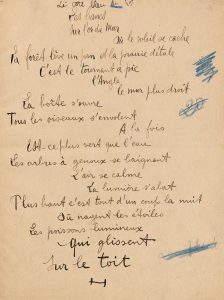 Le côté bleu
du ciel
c'est l'envers
Sur l'or du Mur
Où le soleil se cache
La forêt lève un pan de la prairie détale
C'est le tournant à pic
L'Angle
le mur plus droit
La boîte s'ouvre
Tous les oiseaux s'envolent
A la fois
Est-ce plus vert que l'eau
Les arbres à genoux se baignent
L'air se calme
La lumière s'abat
Plus haut c'est tout d'un coup la nuit
Où nagent les étoiles
Les poissons lumineux
Qui glissent
Sur le toit